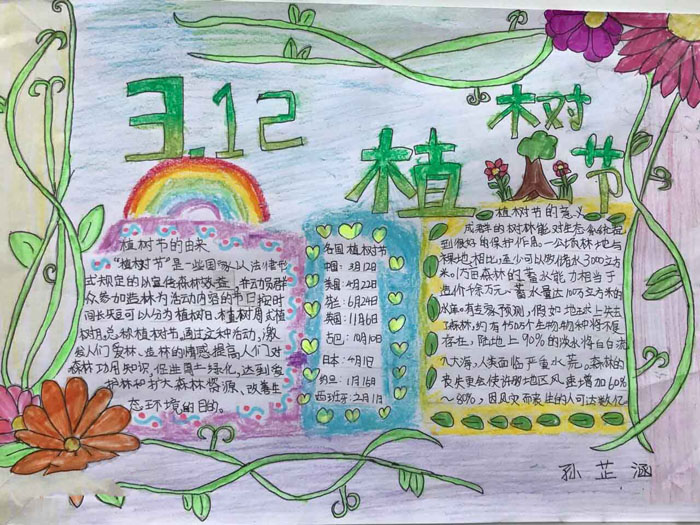 3.12
植树节
植树节的由来
"植树节"是一些国家以法律形
式规定的以宣传森林效益,并动员群
众参加造林为活动内容的节日,按时
间长短可以分为植树日、植树周或植
树月,总称植树节。通过这种活动,激
发人们爱林、造林的情感,提高人们对
森林功用知识,促进国土绿化,达到爱
护林和扩大森林资源、改善生
态环境的目的。
各国植树节
中国:3月12日
美国:4月22日
英国:11月6日
古巴:10月10日
日本:4月1日
约旦:1月16日
西班牙:2月1日
植树节的意义
成群的树林能对生态系统起
到很好的保护作用。一公顷林地与
裸地相比,至少可以多储水3000立方
米。1万亩森林的蓄水能力相当于
造价千余万元、蓄水量达100万立方米的
水库。有专家预测,假如地球上失去
了森林,约有450万个生物物种将不复
存生,陆地上90%的淡水将白白流
入大海,人类面临严重水荒。森林的
丧失更会使许多地区风速增加60%
~80%,因风灾而丧生的人可达数亿
孙芷涵